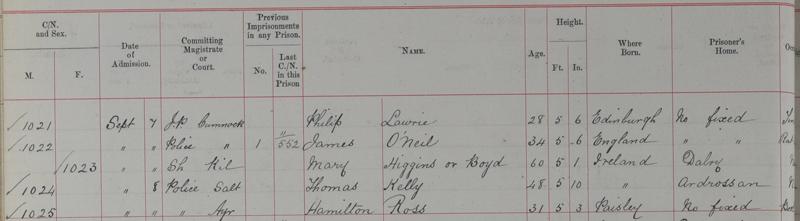 C/N. and Sex. Date of Admission. Committing Magistrate or Court. Previous Imprisonments in any Prison. NAME. Age. Height. Where Born. Prisoner's Home.
M. F. No. Last C/N. in this Prison Ft. In.
1021 Sept 7 J.P. Cumnock Philip Lawrie 28 5 6 Edinburgh No fixed
1022 " " Police " 1 " 552 James O'Neil 34 5 6 England " "
1023 " " Sh Kil Mary Higgins or Boyd 60 5 1 Ireland Dalry
1024 " 8 Police Salt Thomas Kelly 48 5 10 " Ardrossan
1025 " " " Ayr Hamilton Ross 31 5 3 Paisley No fixed